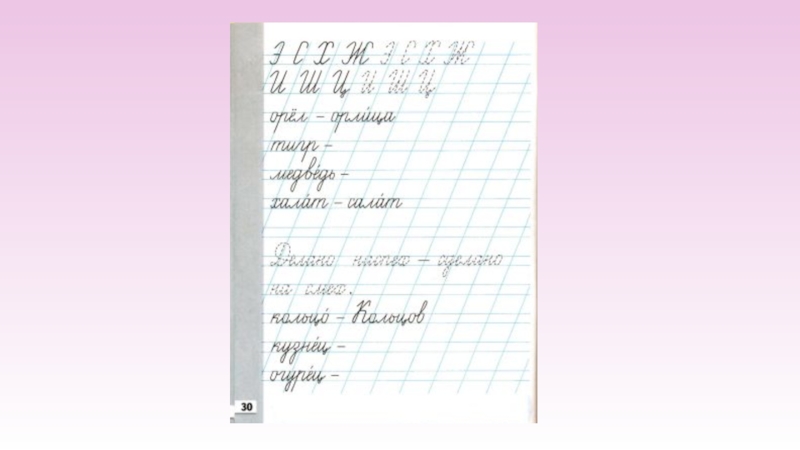 Э С Х Ж Э С Х Ж
И Ш Ц И Ш Ц
орёл – орли́ца
тигр –
медве́дь –
хала́т – сала́т
Делано наспех – сделано
на смех.
кольцо́ – Кольцов
кузне́ц –
огуре́ц –
30